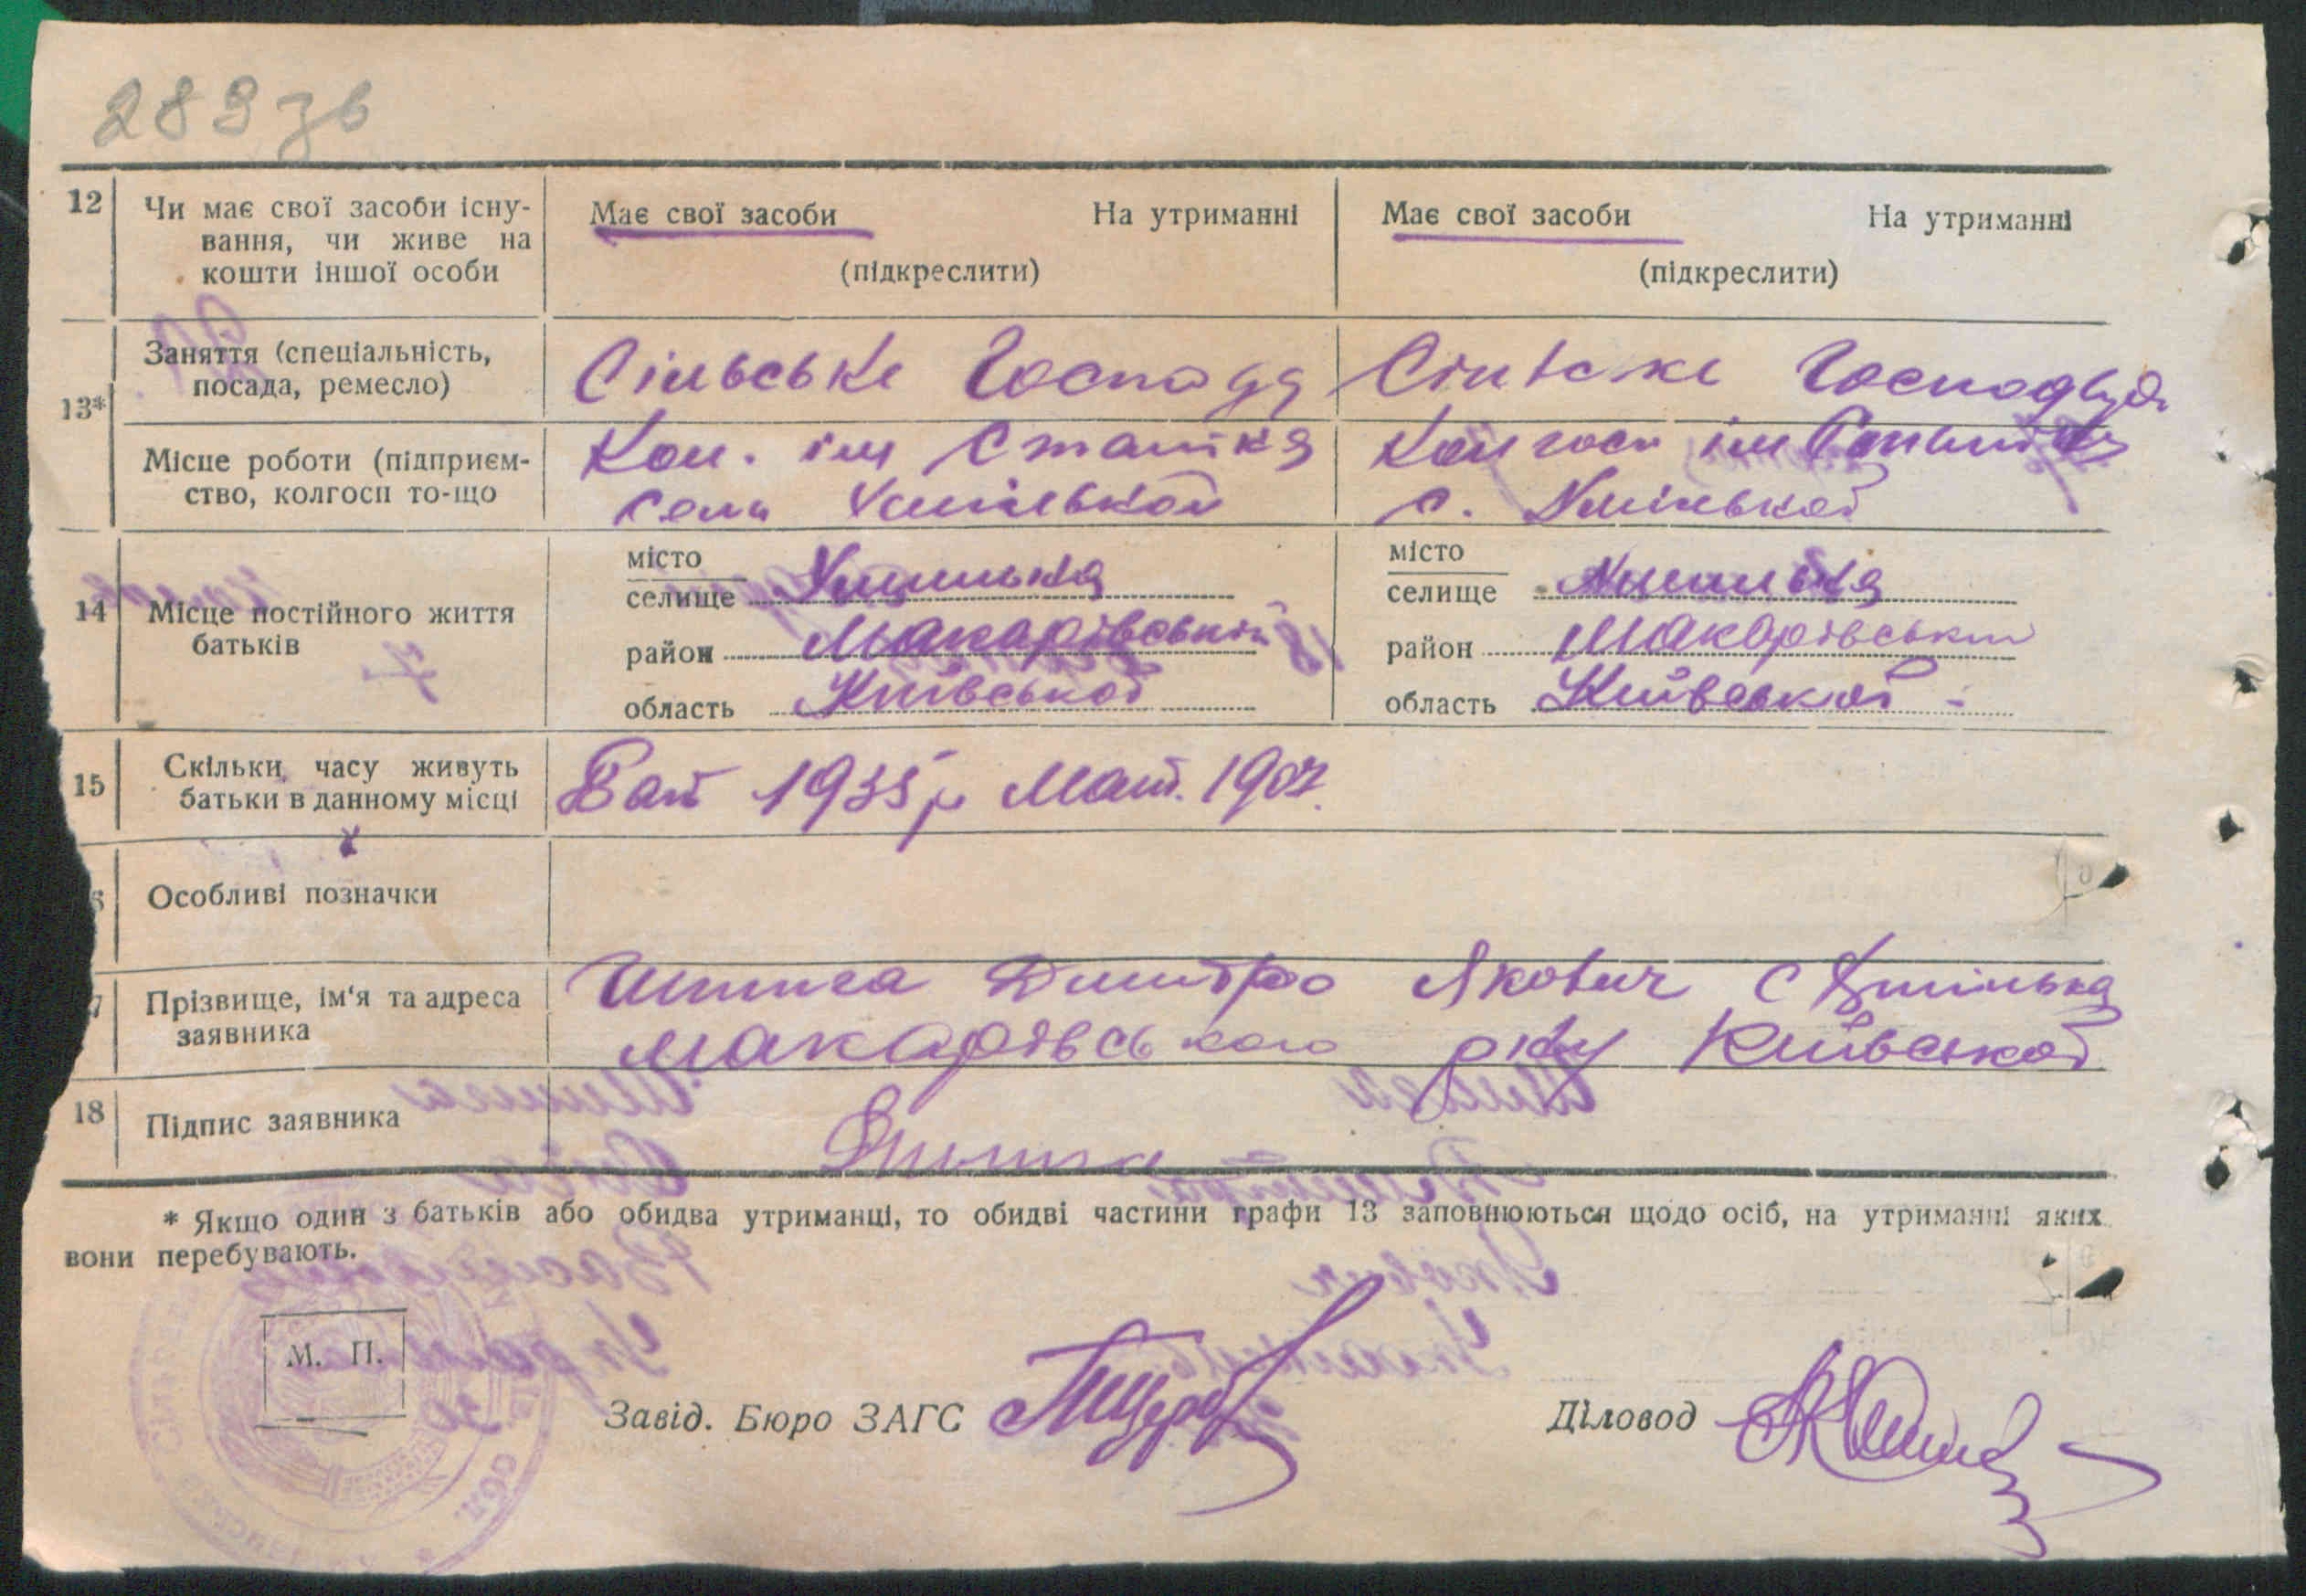 289 зв
12 Чи має свої засоби існу-
вання, чи живе на
кошти іншої особи
Має свої засоби На утриманні
(підкреслити)
Має свої засоби На утриманні
(підкреслити)
13*
Заняття (спеціальність,
посада, ремесло)
Сільське Господ
Сільске Господ
Місце роботи (підприєм-
ство, колгосп то-що
Кол. ім Сталіна
села
Колгосп ім
с.
14 Місце постійного життя
батьків
місто
селище
район Макарівський
область Київської
місто
селище
район Макарівський
область Київської
15 Скільки часу живуть
батьки в данному місці
Бат 1935 р Мат. 1907
Особливі позначки
7 Прізвище, ім'я та адреса
заявника
Дмитро Якович с
Макарівського р-ну Київської
18 Підпис заявника
* Якщо один з батьків або обидва утриманці, то обидві частини графи 13 заповнюються щодо осіб, на утриманні яких
вони перебувають.
М. П.
Завід. Бюро ЗАГС
Діловод